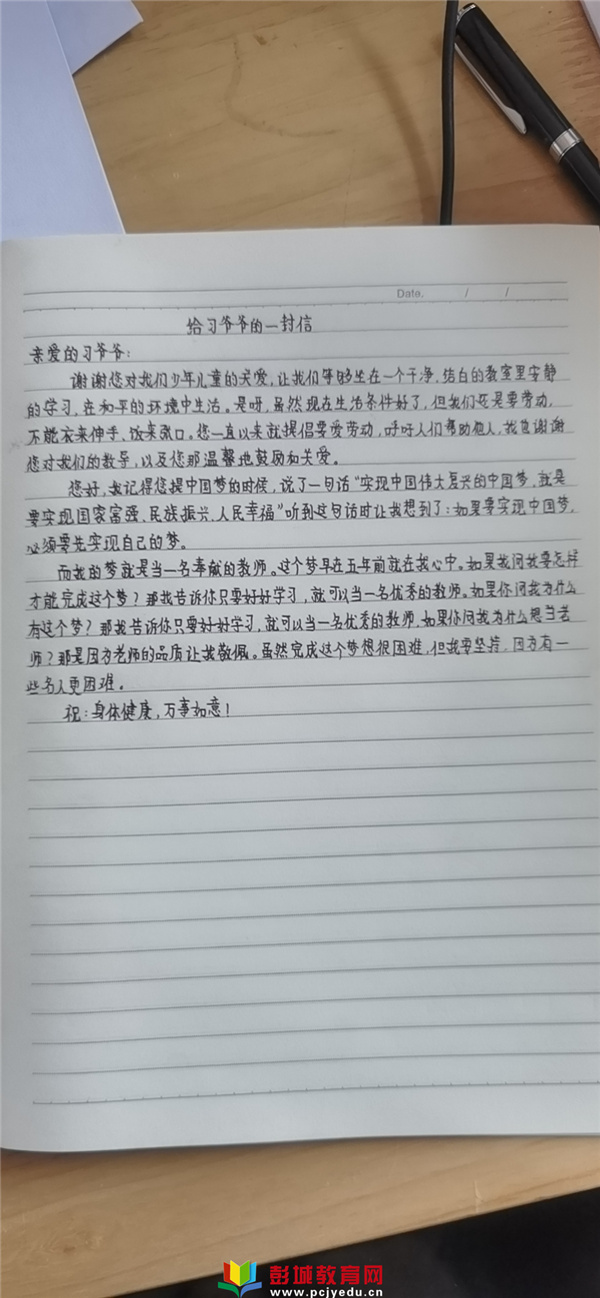 Date. / /
给习爷爷的一封信
亲爱的习爷爷：
谢谢您对我们少年儿童的关爱，让我们能够坐在一个干净、洁白的教室里安静
的学习，在和平的环境中生活。是呀，虽然现在生活条件好了，但我们还是要劳动，
不能衣来伸手、饭来张口。您一直以来就提倡要爱劳动，呼吁人们帮助他人，我也谢谢
您对我们的教导，以及您那温馨地鼓励和关爱。
您好，我记得您提中国梦的时候，说了一句话“实现中国伟大复兴的中国梦，就是
要实现国家富强、民族振兴、人民幸福”听到这句话时让我想到了：如果要实现中国梦，
必须要先实现自己的梦。
而我的梦就是当一名奉献的教师。这个梦早在五年前就在我心中。如果我问我要怎样
才能完成这个梦？那我告诉你只要好好学习，就可以当一名优秀的教师。如果你问我为什么
有这个梦？那我告诉你只要好好学习，就可以当一名优秀的教师。如果你问我为什么想当老
师？那是因为老师的品质让我敬佩。虽然完成这个梦想很困难，但我要坚持，因为有一
些名人更困难。
祝：身体健康，万事如意！
彭城教育网
www.pcjyedu.cn